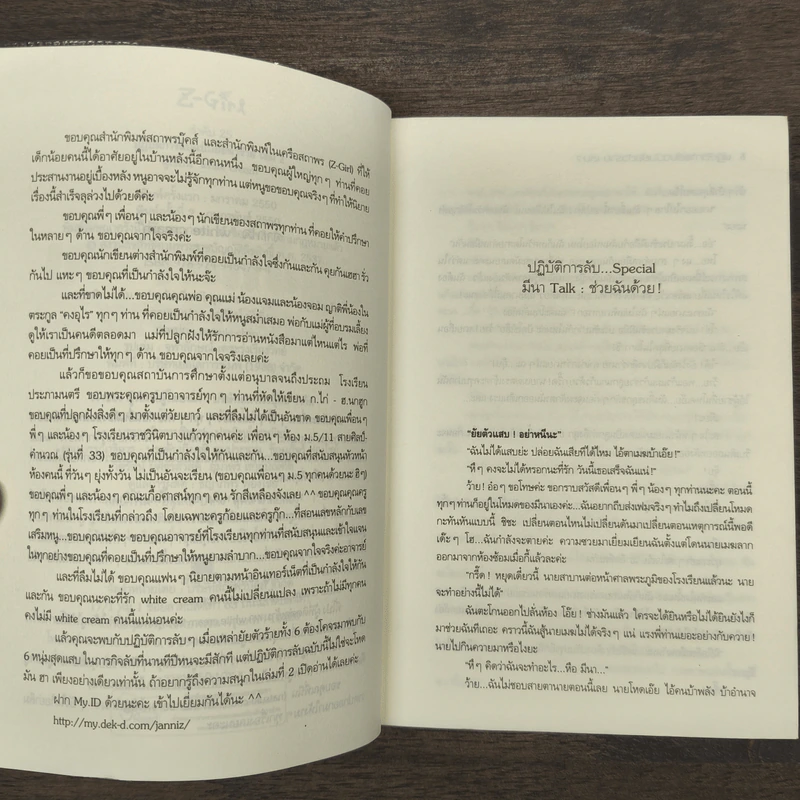 ขอบคุณสำนักพิมพ์สถาพรบุ๊คส์ และสำนักพิมพ์ในเครือสถาพร (Z-Girl) ที่ให้
เด็กน้อยคนนี้ได้อาศัยอยู่ในบ้านหลังนี้อีกคนหนึ่ง ขอบคุณผู้ใหญ่ทุกๆ ท่านที่คอย
ประสานงานอยู่เบื้องหลัง หนูอาจจะไม่รู้จักทุกท่าน แต่หนูขอขอบคุณจริงๆ ที่ทำให้นิยาย
เรื่องนี้สำเร็จลุล่วงไปด้วยดีค่ะ
ขอบคุณพี่ๆ เพื่อนๆ และน้องๆ นักเขียนของสถาพรทุกท่าน ที่คอยให้คำปรึกษา
ในหลายๆ ด้าน ขอบคุณจากใจจริงค่ะ
ขอบคุณนักเขียนต่างสำนักพิมพ์ที่คอยเป็นกำลังใจซึ่งกันและกัน คุยกันเฮฮา รั่ว
กันไป แหะๆ ขอบคุณที่เป็นกำลังใจให้นะจ๊ะ
และที่ขาดไม่ได้...ขอบคุณคุณพ่อ คุณแม่ น้องแจมและน้องจอม ญาติพี่น้องใน
ตระกูล "คงอุไร" ทุกๆ ท่าน ที่คอยเป็นกำลังใจให้หนูสม่ำเสมอ พ่อกับแม่ผู้ที่อบรมเลี้ยง
ดูให้เราเป็นคนดีตลอดมา แม่ที่ปลูกฝังให้รักการอ่านหนังสือมาแต่ไหนแต่ไร พ่อที่
คอยเป็นที่ปรึกษาให้ทุกๆ ด้าน ขอบคุณจากใจจริงเลยค่ะ
แล้วก็ขอขอบคุณสถาบันการศึกษาตั้งแต่อนุบาลจนถึงประถม โรงเรียน
ประภามนตรี ขอบพระคุณครูบาอาจารย์ทุกๆ ท่านที่หัดให้เขียน ก.ไก่ - ฮ.นกฮูก
ขอบคุณที่ปลูกฝังสิ่งดีๆ มาตั้งแต่วัยเยาว์ และที่ลืมไม่ได้เป็นอันขาด ขอบคุณเพื่อนๆ
พี่ๆ และน้องๆ โรงเรียนราชวินิตบางแก้วทุกคนค่ะ เพื่อนๆ ห้อง ม.5/11 สายศิลป์-
คำนวณ (รุ่นที่ 33) ขอบคุณที่เป็นกำลังใจให้กันและกัน...ขอบคุณที่สนับสนุนหัวหน้า
ห้องคนนี้ ที่วันๆ ยุ่งทั้งวัน ไม่เป็นอันจะเรียน (ขอบคุณเพื่อนๆ ม.5 ทุกคนด้วยนะ ฮิๆ)
ขอบคุณพี่ๆ และน้องๆ คณะเกื้อศาสน์ทุกๆ คน รักสีเหลืองจังเลย ^^ ขอบคุณคุณครู
ทุกๆ ท่านในโรงเรียนที่กล่าวถึง โดยเฉพาะครูก้อยและครูกุ๊ก...ที่สอนเลขหลักกับเลข
เสริมหนู...ขอบคุณนะคะ ขอบคุณอาจารย์ที่โรงเรียนทุกท่านที่สนับสนุนและเข้าใจแจน
ในทุกอย่างขอบคุณที่คอยเป็นที่ปรึกษาให้หนูยามลำบาก...ขอบคุณจากใจจริงค่ะอาจารย์
และที่ลืมไม่ได้ ขอบคุณแฟนๆ นิยายตามหน้าอินเทอร์เน็ตที่เป็นกำลังใจให้กัน
และกัน ขอบคุณนะคะที่รัก white cream คนนี้ไม่เปลี่ยนแปลง เพราะถ้าไม่มีทุกคน
คงไม่มี white cream คนนี้แน่นอนค่ะ
แล้วคุณจะพบกับปฏิบัติการลับๆ เมื่อเหล่ายัยตัวร้ายทั้ง 6 ต้องโคจรมาพบกับ
6 หนุ่มสุดแสบ ในภารกิจลับที่นานทีปีหนจะมีสักที แต่ปฏิบัติการลับฉบับนี้ไม่ใช่จะโหด
มัน ฮา เพียงอย่างเดียวเท่านั้น ถ้าอยากรู้ถึงความสนุกในเล่มที่ 2 เปิดอ่านได้เลยค่ะ
ฝาก My.ID ด้วยนะคะ เข้าไปเยี่ยมกันได้นะ ^^
http://my.dek-d.com/janniz/
ปฏิบัติการลับ...Special
มีนา Talk : ช่วยฉันด้วย!
"ยัยตัวแสบ! อย่าหนีนะ"
"ฉันไม่ได้แสบย่ะ ปล่อยฉันเสียทีได้ไหม ไอ้ตาเมฆบ้าเอ๊ย!"
"หึๆ คงจะไม่ได้หรอกนะที่รัก วันนี้เธอเสร็จฉันแน่!"
ว้าย! อ๋อๆ ขอโทษค่ะ ขอกราบสวัสดีเพื่อนๆ พี่ๆ น้องๆ ทุกท่านนะคะ ตอนนี้
ทุกๆ ท่านก็อยู่ในโหมดของมีนาเองค่ะ...ฉันอยากถีบส่งเฟมจริงๆ ทำไมถึงเปลี่ยนโหมด
กะทันหันแบบนี้ ชิชะ เปลี่ยนตอนไหนไม่เปลี่ยนดันมาเปลี่ยนตอนเหตุการณ์นี้พอดี
เด๊ะๆ โฮ...ฉันกำลังจะตายค่ะ ความซวยมาเยี่ยมเยียนฉันตั้งแต่โดนนายเมฆลาก
ออกมาจากห้องซ้อมเมื่อกี้แล้วละค่ะ
"กรี๊ด! หยุดเดี๋ยวนี้ นายสาบานต่อหน้าศาลพระภูมิของโรงเรียนแล้วนะ นาย
จะทำอย่างนี้ไม่ได้"
ฉันตะโกนออกไปลั่นห้อง โอ๊ย! ช่างมันแล้ว ใครจะได้ยินหรือไม่ได้ยินยังไงก็
มาช่วยฉันทีเถอะ คราวนี้ฉันสู้นายเมฆไม่ได้จริงๆ แน่ แรงพี่ท่านเยอะอย่างกับควาย!
นายไปกินควายมาหรือไงยะ
"หึๆ คิดว่าฉันจะทำอะไร...หือ มีนา..."
ว้าย...ฉันไม่ชอบสายตานายตอนนี้เลย นายโหดเอ๊ย ไอ้คนบ้าพลัง บ้าอำนาจ